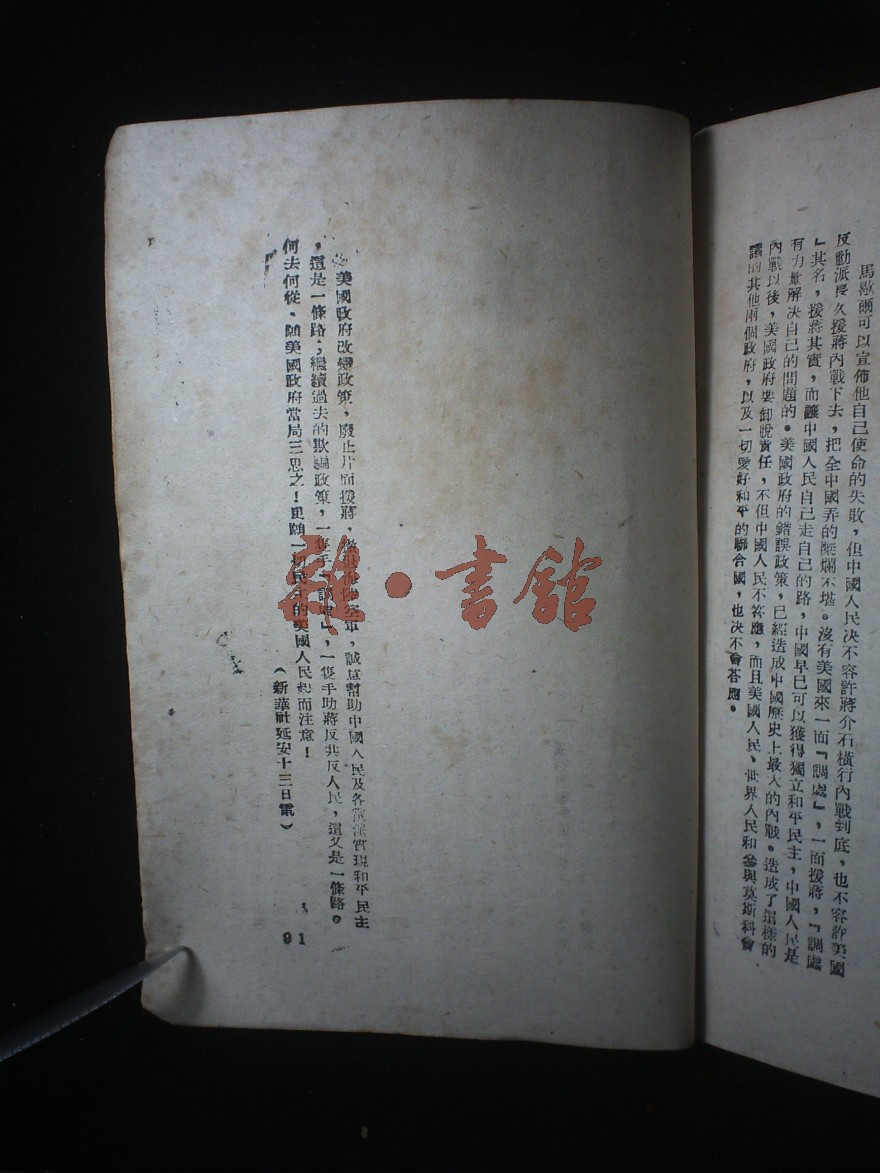 馬歇爾可以宣佈他自己使命的失敗，但中國人民决不容許蔣介石橫行內戰到底，也不容許美國
反動派長久援蔣內戰下去，把全中國弄的糜爛不堪。沒有美國來一面『調處』，一面援蔣，『調處
』其名，援蔣其實，而讓中國人民自己走自己的路，中國早已可以獲得獨立和平民主，中國人民是
有力量解决自己的問題的。美國政府的錯誤政策，已經造成中國歷史上最大的內戰。造成了這樣的
內戰以後，美國政府要卸脫責任，不但中國人民不答應，而且美國人民、世界人民和參與莫斯科會
議的其他兩個政府，以及一切愛好和平的聯合國，也决不會答應。
美國政府改變政策，廢止片面援蔣，軍，誠意幫助中國人民及各黨派實現和平民主
，這是一條路；繼續過去的欺騙政策，一隻手『調處』，一隻手助蔣反共反人民，這又是一條路。
何去何從，願美國政府當局三思之！更願一切民主的美國人民起而注意！
（新華社延安十三日電）
91
雜·書館